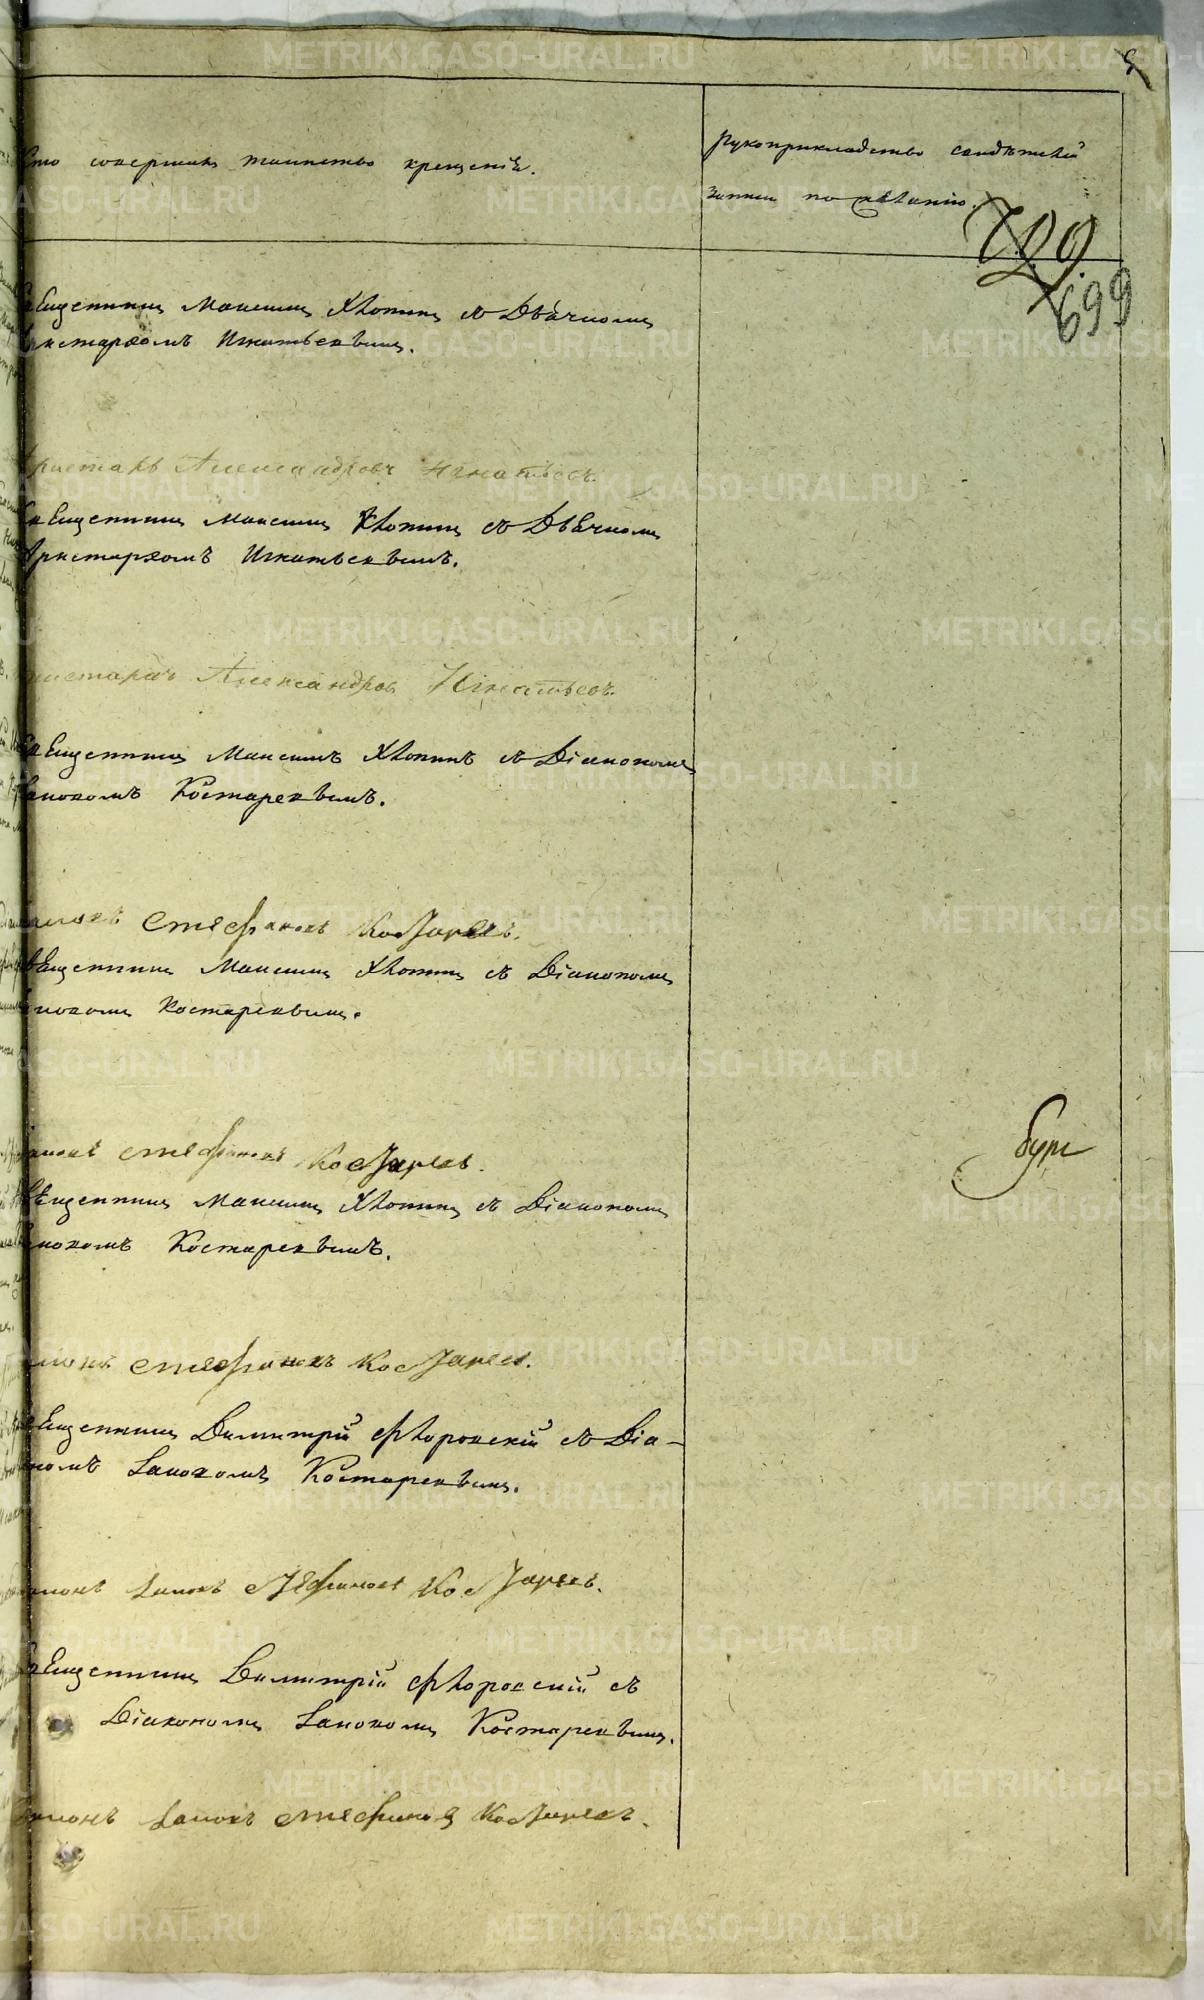 5
Кто совершалъ таинство крещенія.
Рукоприкладство свидѣтелей
записи по желанію.
720
699
Священникъ Максимъ Хлопинъ съ Дьячкомъ
Аристархомъ Игнатьевымъ.
Аристархъ Александровъ Игнатьевъ.
Священникъ Максимъ Хлопинъ съ Дьячкомъ
Аристархомъ Игнатьевымъ.
Аристархъ Александровъ Игнатьевъ.
Священникъ Максимъ Хлопинъ съ Діакономъ
Іаковомъ Костаревымъ.
Іаковъ Стефановъ Костаревъ.
Священникъ Максимъ Хлопинъ съ Діакономъ
Іаковомъ Костаревымъ.
Іаковъ Стефановъ Костаревъ.
бург
Священникъ Максимъ Хлопинъ съ Діакономъ
Іаковомъ Костаревымъ.
Іаковъ Стефановъ Костаревъ.
Священникъ Димитрій Флоровскій съ Діа-
кономъ Іаковомъ Костаревымъ.
Діаконъ Іаковъ Стефановъ Костаревъ.
Священникъ Димитрій Флоровскій съ
Діакономъ Іаковомъ Костаревымъ.
Діаконъ Іаковъ Стефановъ Костаревъ.